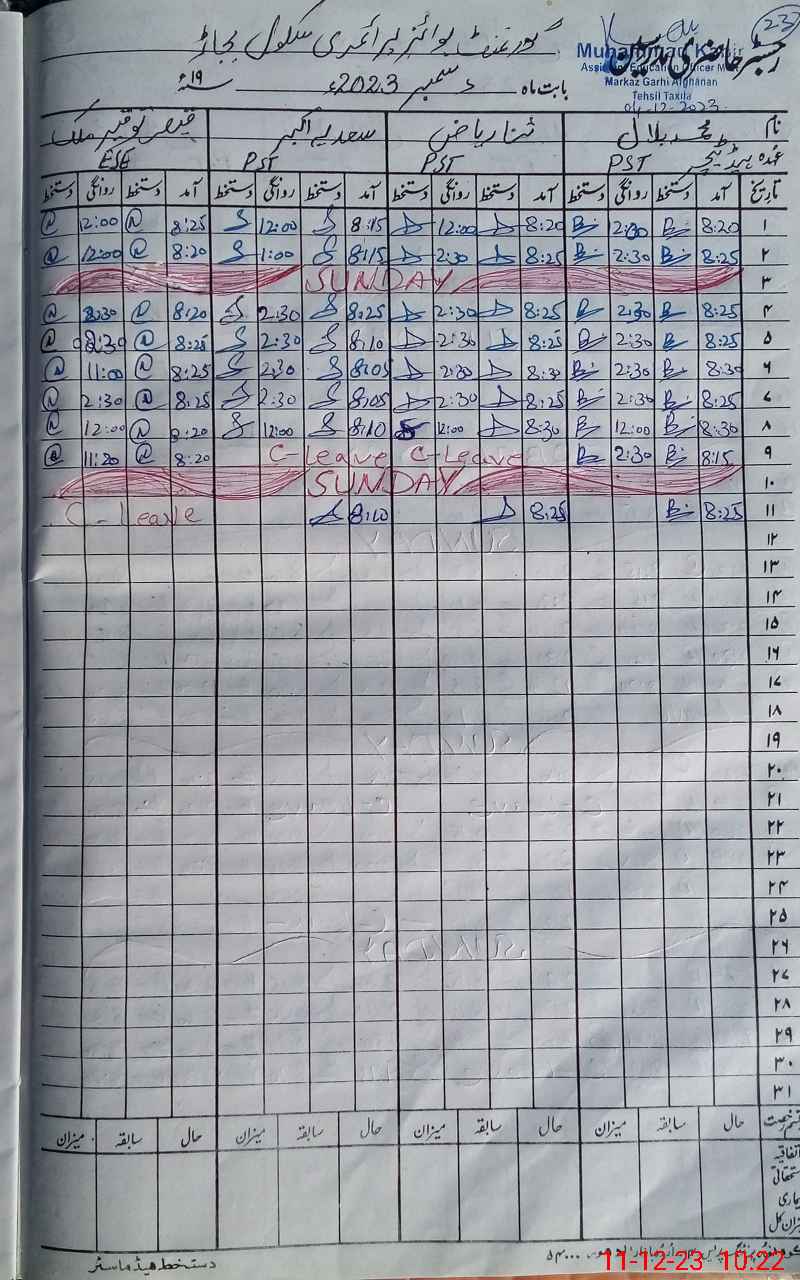 23
گورنمنٹ بوائز پرائمری سکول بجاڑ
رجسٹر حاضری مدرسین
Muhammad K
Assistant Education Officer M
Markaz Garhi Afghanan
Tehsil Taxila
04-12-2023
بابت ماہ دسمبر 2023ء ۱۹ سنہ ء
نام محمد بلال ثنا ریاض سعدیہ اکبر قیصر توقیر ملک
عہدہ ہیڈ ٹیچر PST PST PST ESE
تاریخ آمد دستخط روانگی دستخط آمد دستخط روانگی دستخط آمد دستخط روانگی دستخط آمد دستخط روانگی دستخط
۱ 8:20 2:30 8:20 12:00 8:15 12:00 8:25 12:00
۲ 8:25 2:30 8:25 2:30 8:15 1:00 8:20 12:00
۳ SUNDAY
۴ 8:25 2:30 8:25 2:30 8:25 2:30 8:20 2:30
۵ 8:25 2:30 8:25 2:30 8:10 2:30 8:25
۶ 8:30 2:30 8:30 2:30 8:05 2:30 8:25 11:00
۷ 8:25 2:30 8:25 2:30 8:05 2:30 8:25 2:30
۸ 8:30 12:00 8:30 12:00 8:10 12:00 8:20 12:00
۹ 8:15 2:30 C-Leave C-Leave 8:20 11:20
۱۰ SUNDAY
۱۱ 8:25 8:25 8:10 C-Leave
۱۲
۱۳
۱۴
۱۵
۱۶
۱۷
۱۸
۱۹
۲۰
۲۱
۲۲
۲۳
۲۴
۲۵
۲۶
۲۷
۲۸
۲۹
۳۰
۳۱
حال سابقہ میزان حال سابقہ میزان حال سابقہ میزان حال سابقہ میزان
اتفاقیہ
بیماری
میزان کل
دستخط ہیڈ ماسٹر
11-12-23 10:22